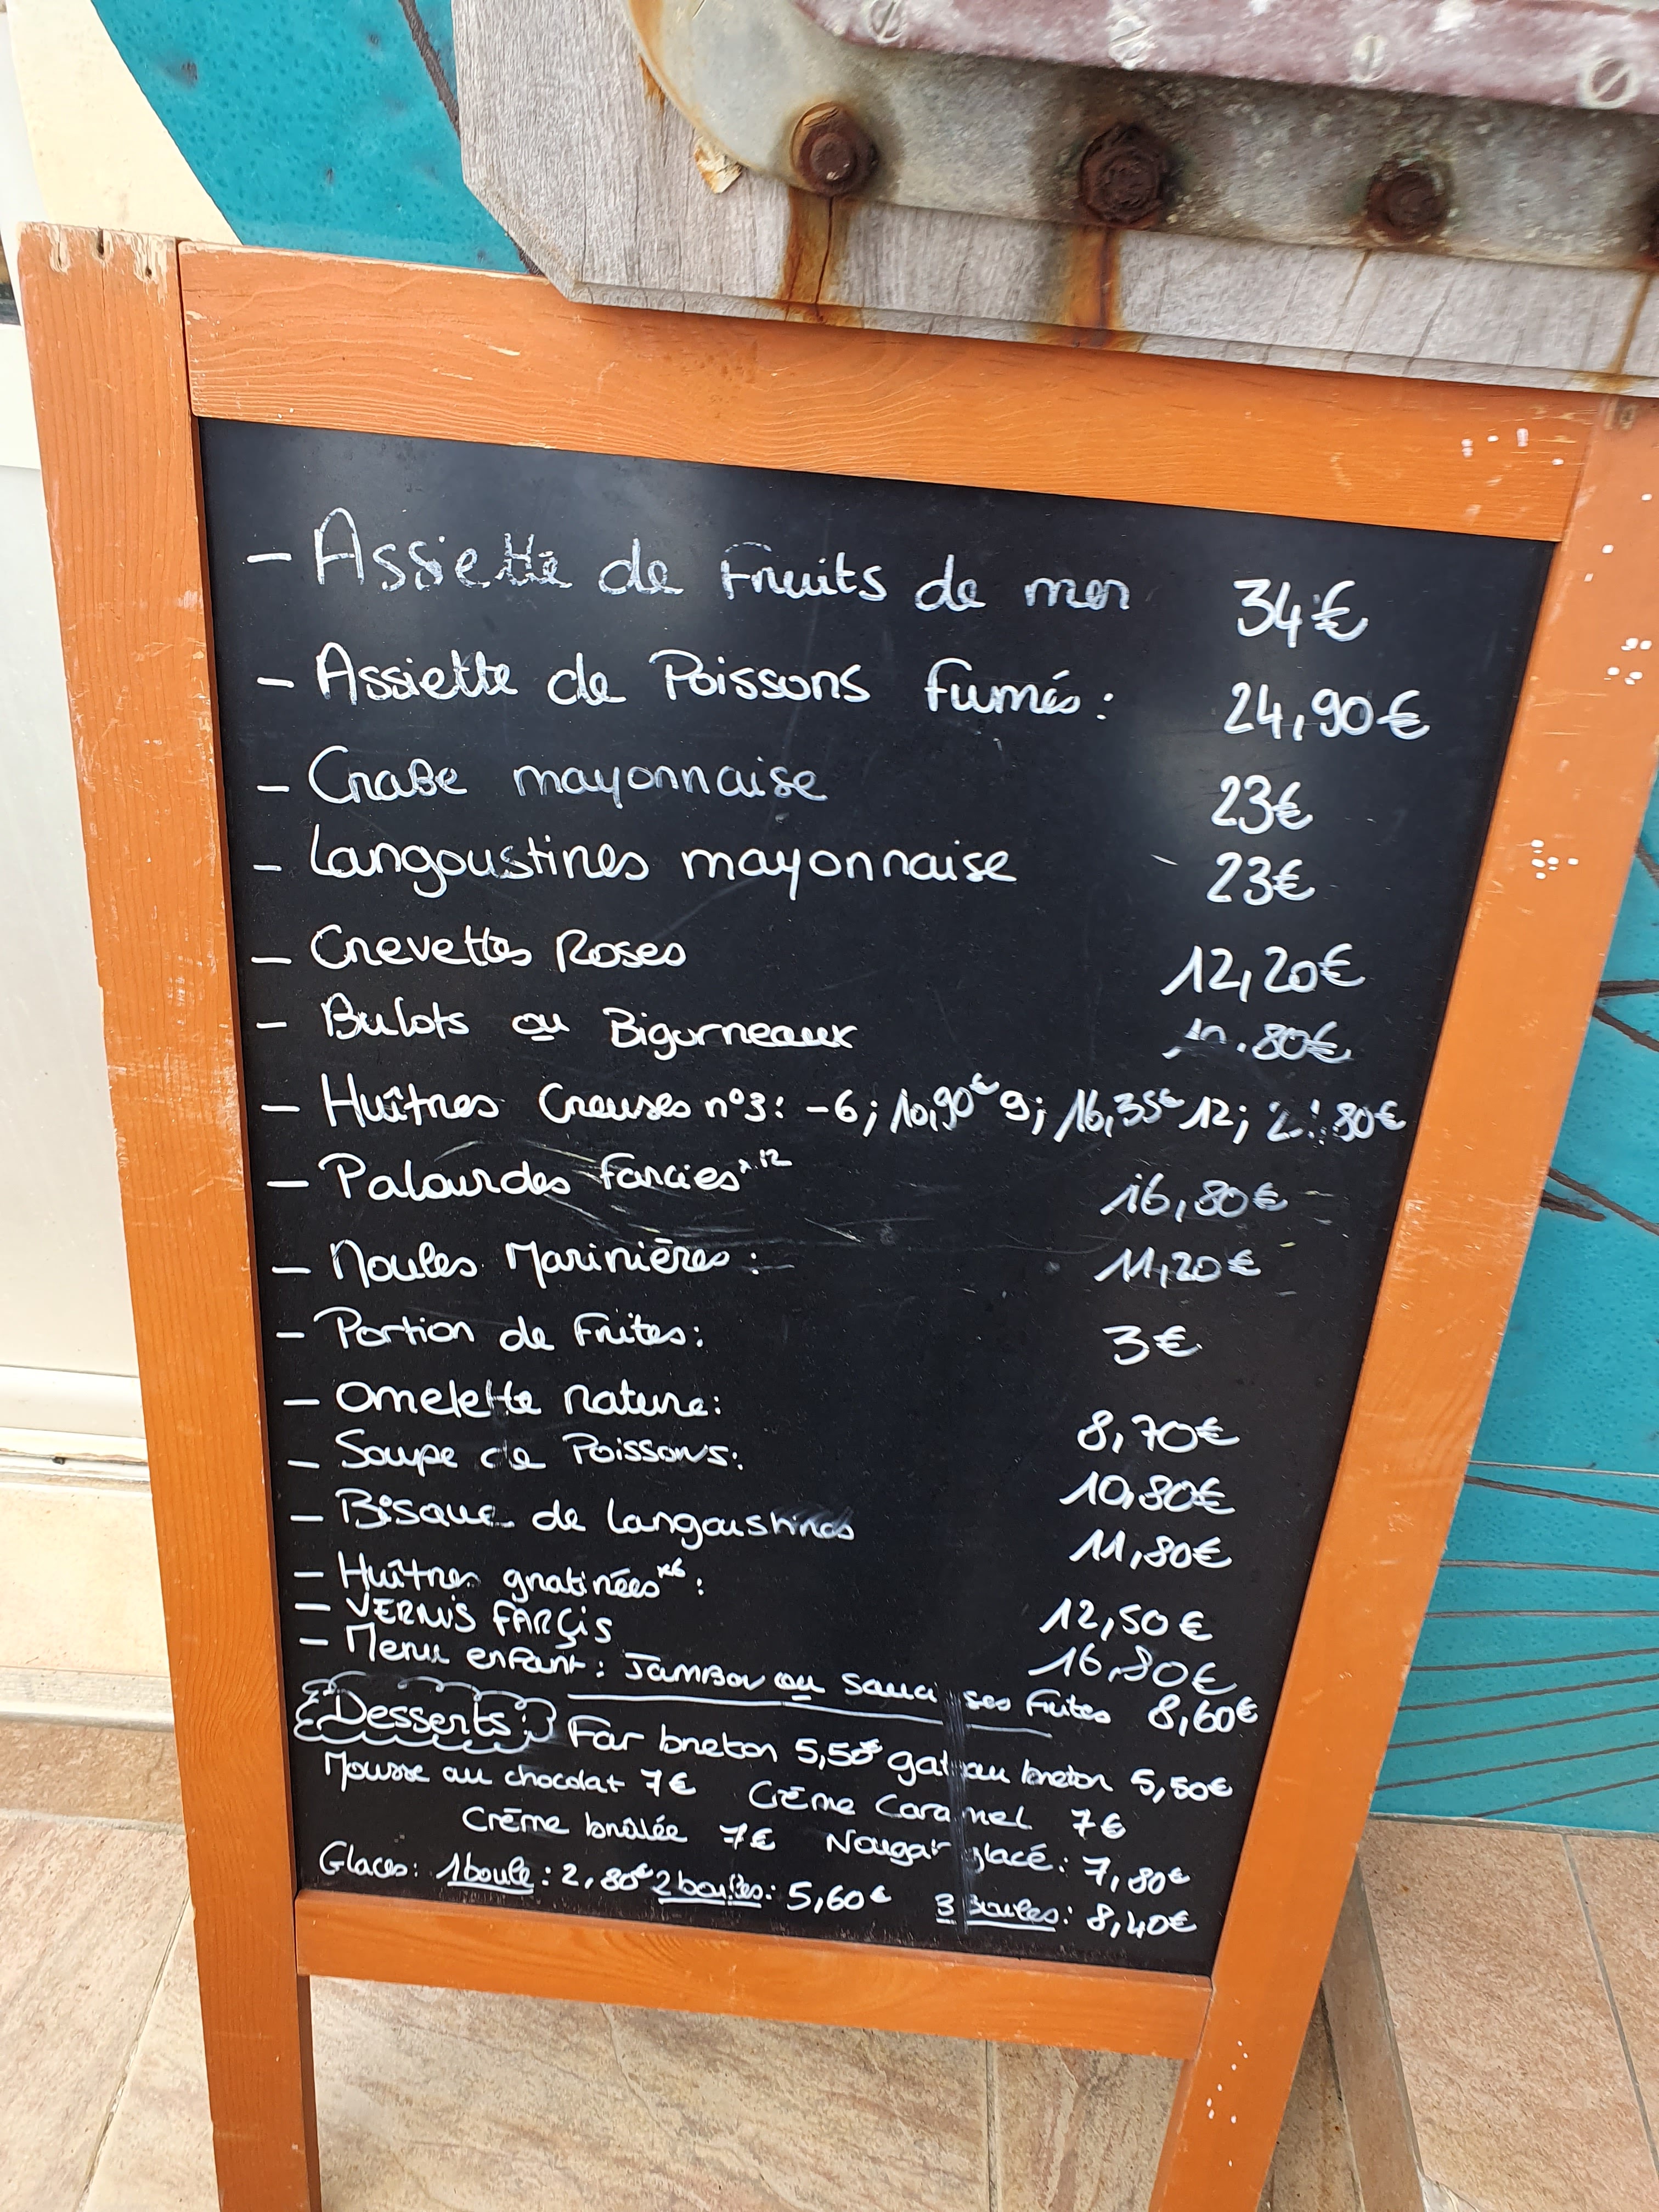 - Assiette de Fruits de mer 34€
- Assiette de Poissons fumés : 24,90€
- CraBe mayonnaise 23€
- Langoustines mayonnaise 23€
- Crevettes Roses 12,20€
- Bulots ou Bigorneaux
- Huîtres Creuses n°3: -6; 10,90€ 9; 16,35€ 12;
- Palourdes farcies x12 16,80€
- Moules Marinières : 11,20€
- Portion de Frites: 3€
- Omelette nature: 8,70€
- Soupe de Poissons: 10,80€
- Bisque de langoustines 11,80€
- Huîtres gratinées x6 : 12,50€
- VERNIS FARÇIS 16,80€
- Menu enfant : JamBon ou ses Frites 8,60€
Desserts: Far breton 5,50€ gateau breton 5,50€
Mousse au chocolat 7€ Crème Caramel 7€
Crème brûlée 7€ Nougat glacé: 7,80€
Glaces: 1boule : 2,80€ 2boules: 5,60€ 3 Boules: 8,40€